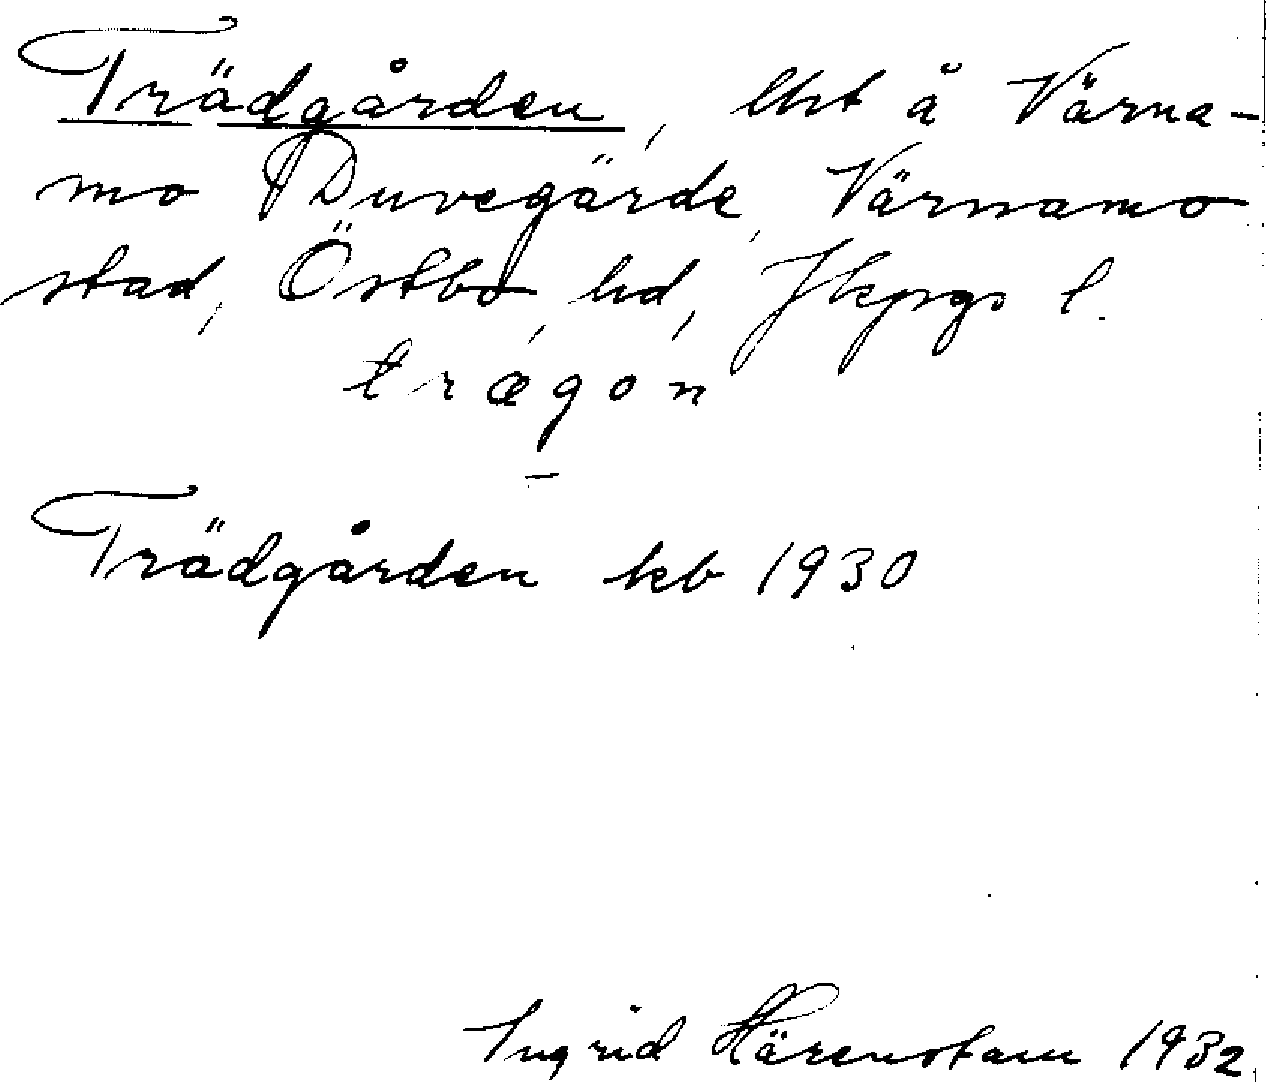 Trädgården, lht å Värna-
mo Duvegärde, Värnamo
stad, Östbo hd, Jkpgs l.
trægón
Trädgården kb 1930
Ingrid Härenstam 1932